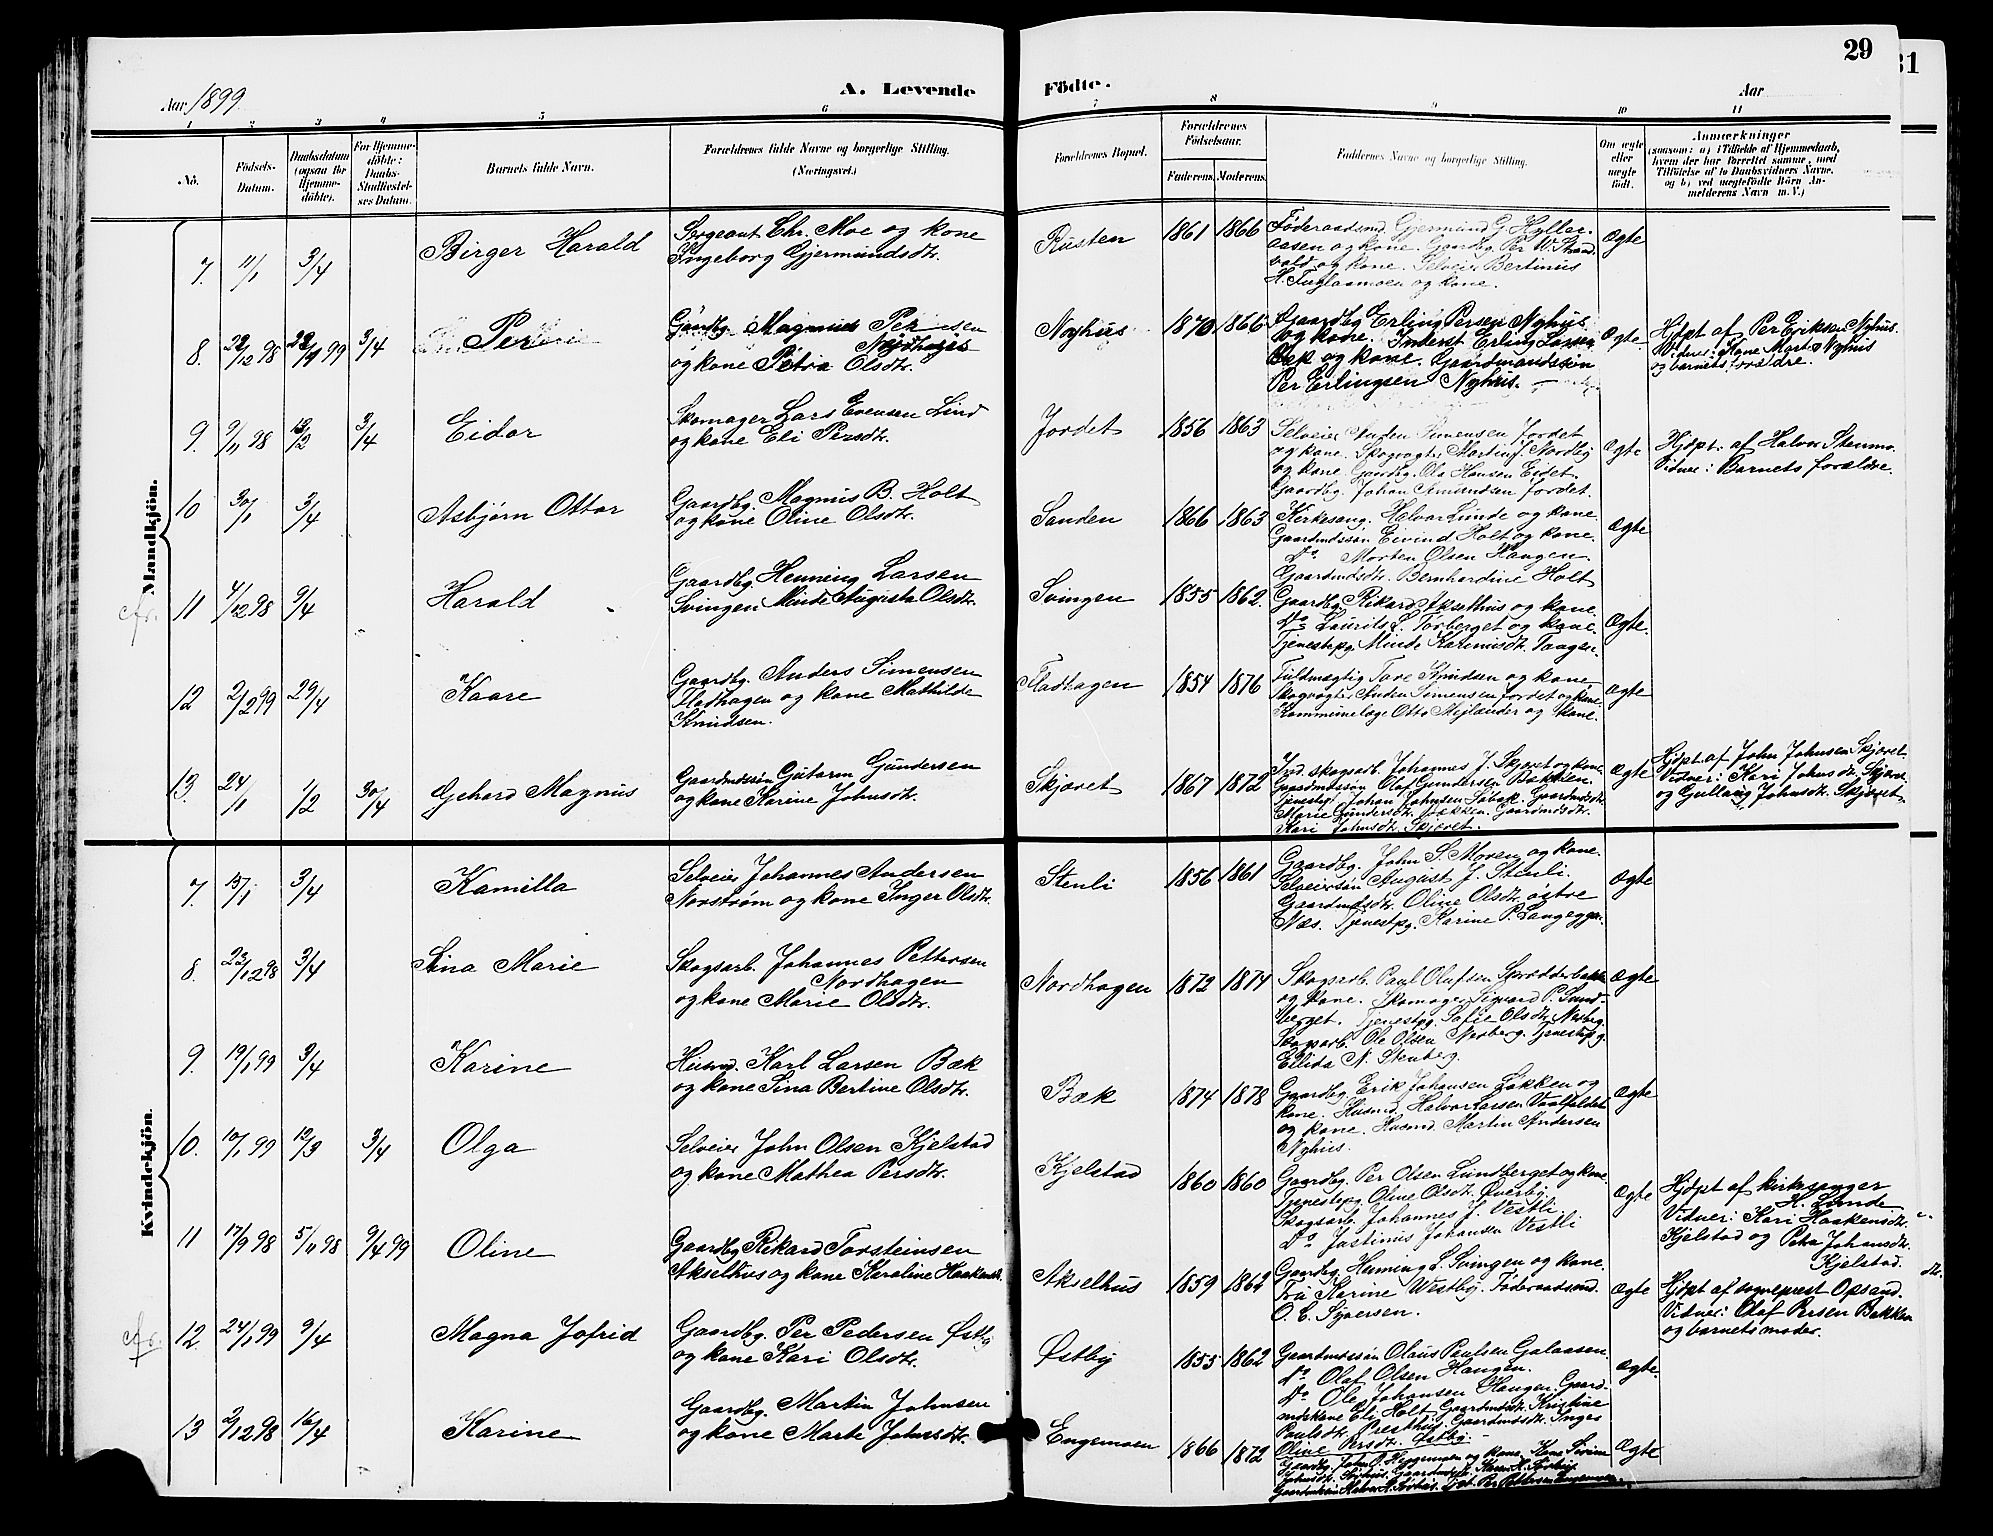 29
31
Aar 1899.
A. Levende
Födte.
Aar
1 2 3 4 5 6 7 8 9 10 11
No.
Födsels-Datum.
Daabsdatum (ogsaa for Hjemme-döbte).
For Hjemme-döbte: Daabs-Stadfæstel-ses Datum.
Barnets fulde Navn.
Forældrenes fulde Navne og borgerlige Stilling. (Næringsvei.)
Forældrenes Bopæl.
Forældrenes Födselsaar.
Faderens. Moderens.
Faddernes Navne og borgerlige Stilling.
Om ægte eller uægte födt.
Anmærkninger
(saasom: a) i Tilfælde af Hjemmedaab, hvem der har forrettet samme, med Tilföielse af to Daabsvidners Navne, og b) ved uægtefödte Börn An-melderens Navn m. V.)
Mandkjön.
7. 11/1 3/4 Birger Harald
Sergeant Chr. Moe og kone
Ingeborg Gjermundsdtr.
Rusten 1861 1866
Föderaadsmd. Gjermund G. Hyllaasen og kone. Gaardbg. Per W. Strandvold og kone. Selveier Bertinus H. Fuglaasmoen og kone.
Ægte
8. 22/12 98 22/1 99 3/4 Per
Gaardbg. Magnus Persen Nordhagen
og kone Petra Olsdtr.
Nyhus 1870 1866
Gaardbg Erling Persen Nyhus
og kone. Inderst Erling Larsen
Bek og kone. Gaardmandssön
Per Erlingsen Nyhus.
Ægte.
Hjdpt af Per Eriksen Nyhus.
Vidner: Kone Marte Nyhus
og barnets forældre.
9. 9/11 98 12/2 3/4 Eidar
Skomager Lars Evensen Lind
og kone Eli Persdtr.
Jordet 1856 1863
Selveier Anden Simensen Jordet
og kone. Skogvogter Martin J. Nordby
og kone. Gaardbg. Ole Hansen Eidet.
Gaardbg. Johan Amundsen Jordet.
Ægte
Hjdpt. af Halvor Stenmo.
Vidner: Barnets forældre.
10 30/1 3/4 Asbjørn Ottar
Gaardbg. Magnus B. Holt
og kone Oline Olsdtr.
Sanden 1866 1863
Kirkesang. Halvor Lunde og kone.
Gaardmdssön Eivind Holt og kone.
Do Morten Olsen Haugen
Gaardmdsdtr. Bernhardine Holt
Ægte
cfr. 11 4/12 98 9/4 Harald
Gaardbg. Henning Larsen
Svingen Minde Augusta Olsdtr.
Svingen 1855 1862.
Gaardbg. Rikard Akselhus og kone.
Do Laurits L. Torberget og kone.
Tjenestepg. Minde Karinusdtr. Taagen.
Ægte.
12 2/2 99 29/4 Kaare
Gaardbg. Anders Simensen
Fladhagen og kone Mathilde
Knudsen.
Fladhagen 1854 1876
Fuldmægtig Tore Knudsen og kone
Skogvogter Anden Simensen Jordet og kone.
Kommunelæge Otto Mejlænder og kone.
Ægte
13. 24/1 1/2 30/4 Gehard Magnus
Gaardmdssön Gutorm Gundersen
og kone Karine Johnsdtr.
Skjæret 1867 1872
Ind. skogsarb. Johannes J. Skjæret og kone.
Gaardmdssön Olaf Gundersen Bækken.
Tjenestep. Johan Johnsen Søbak. Gaardmdsdtr.
Marie Gundersdtr. Bækken. Gaardmdsdtr.
Kari Johnsdtr. Skjæret.
Ægte
Hjdpt af John Johnsen Skjæret
Vidner: Kari Johnsdtr. Skjæret
og Gullaug Johnsdtr. Skjæret
Kvindekjön.
7. 15/1 3/4 Kamilla
Selveier Johannes Andersen
Norström og kone Inger Olsdtr.
Stenli 1856 1861
Gaardbg. John S. Moren og kone.
Selveiersön August J. Stenli.
Gaardmdsdtr. Oline Olsdtr. östre
Næs. Tjenestpg. Karine P. Langeggen.
Ægte
8. 23/12 98 3/4 Sina Marie
Skogsarb. Johannes Pettersen
Nordhagen
og kone Marie Olsdtr.
Nordhagen 1872 1874
Skogsarb. Paul Olufsen Skrædderbakken
og kone. Skomager Sigvard P. Sundberget. Tjenestpg. Sofie Olsdtr. Norberg.
Skogsarb. Ole Olsen Norberg. Tjenestepg.
Ellida N. Stenberg.
Ægte
9. 19/1 99 3/4 Karine
Husmd. Karl Larsen Bæk
og kone Sina Bertine Olsdtr.
Bæk 1874 1878
Gaardbg. Erik Johansen Løkken og
kone. Husmd. Halvor Larsen Vaalfaldet
og kone. Husmd. Martin Andersen
Nyhus.
Ægte
10. 10/1 99 12/3 3/4 Olga
Selveier John Olsen Kjelstad
og kone Mathea Persdtr.
Kjelstad 1860 1860
Gaardbg. Per Olsen Lundberget og kone
Tjenestepg Oline Olsdtr. Øverby.
Skogsarb. Johannes J. Vestli.
Do Jastinus Johansen Vestli
Ægte
Hjdpt af kirkesanger
H. Lunde
Vidner: Kari Haakensdtr.
Kjelstad og Petra Johansdtr.
Kjelstad.
11 17/9 98 5/11 98 9/4 99 Oline
Gaardbg Rikard Torsteinsen
Akselhus og kone Karoline Haakensdtr.
Akselhus 1859 1862
Gaardbg. Henning L. Svingen og kone.
Fru Karine Westby. Föderaadsmd.
O. C. Syversen.
Ægte
Hjdpt af sogneprest Opsand.
Vidner: Olaf Persen Bakken
og barnets moder.
cfr. 12. 24/1 99 9/4 Magna Jofrid
Gaardbg. Per Pedersen Østby
og kone Kari Olsdtr.
Østby 1855 1862
Gaardmdssön Olaus Paulsen Galaasen.
Do Olaf Olsen Haugen.
Do Ole Johansen Haugen. Gaardmdskone Eli Holt. Gaardmdsdtr. Kristine
Paulsdtr. Presthus. Gaardmdsdtr. Inger
Oline Persdtr. Østby.
Ægte.
13 2/12 98 16/4 Karine
Gaardbg. Martin Johnsen
og kone Marte Johnsdtr.
Engemoen 1866 1872
Ægte